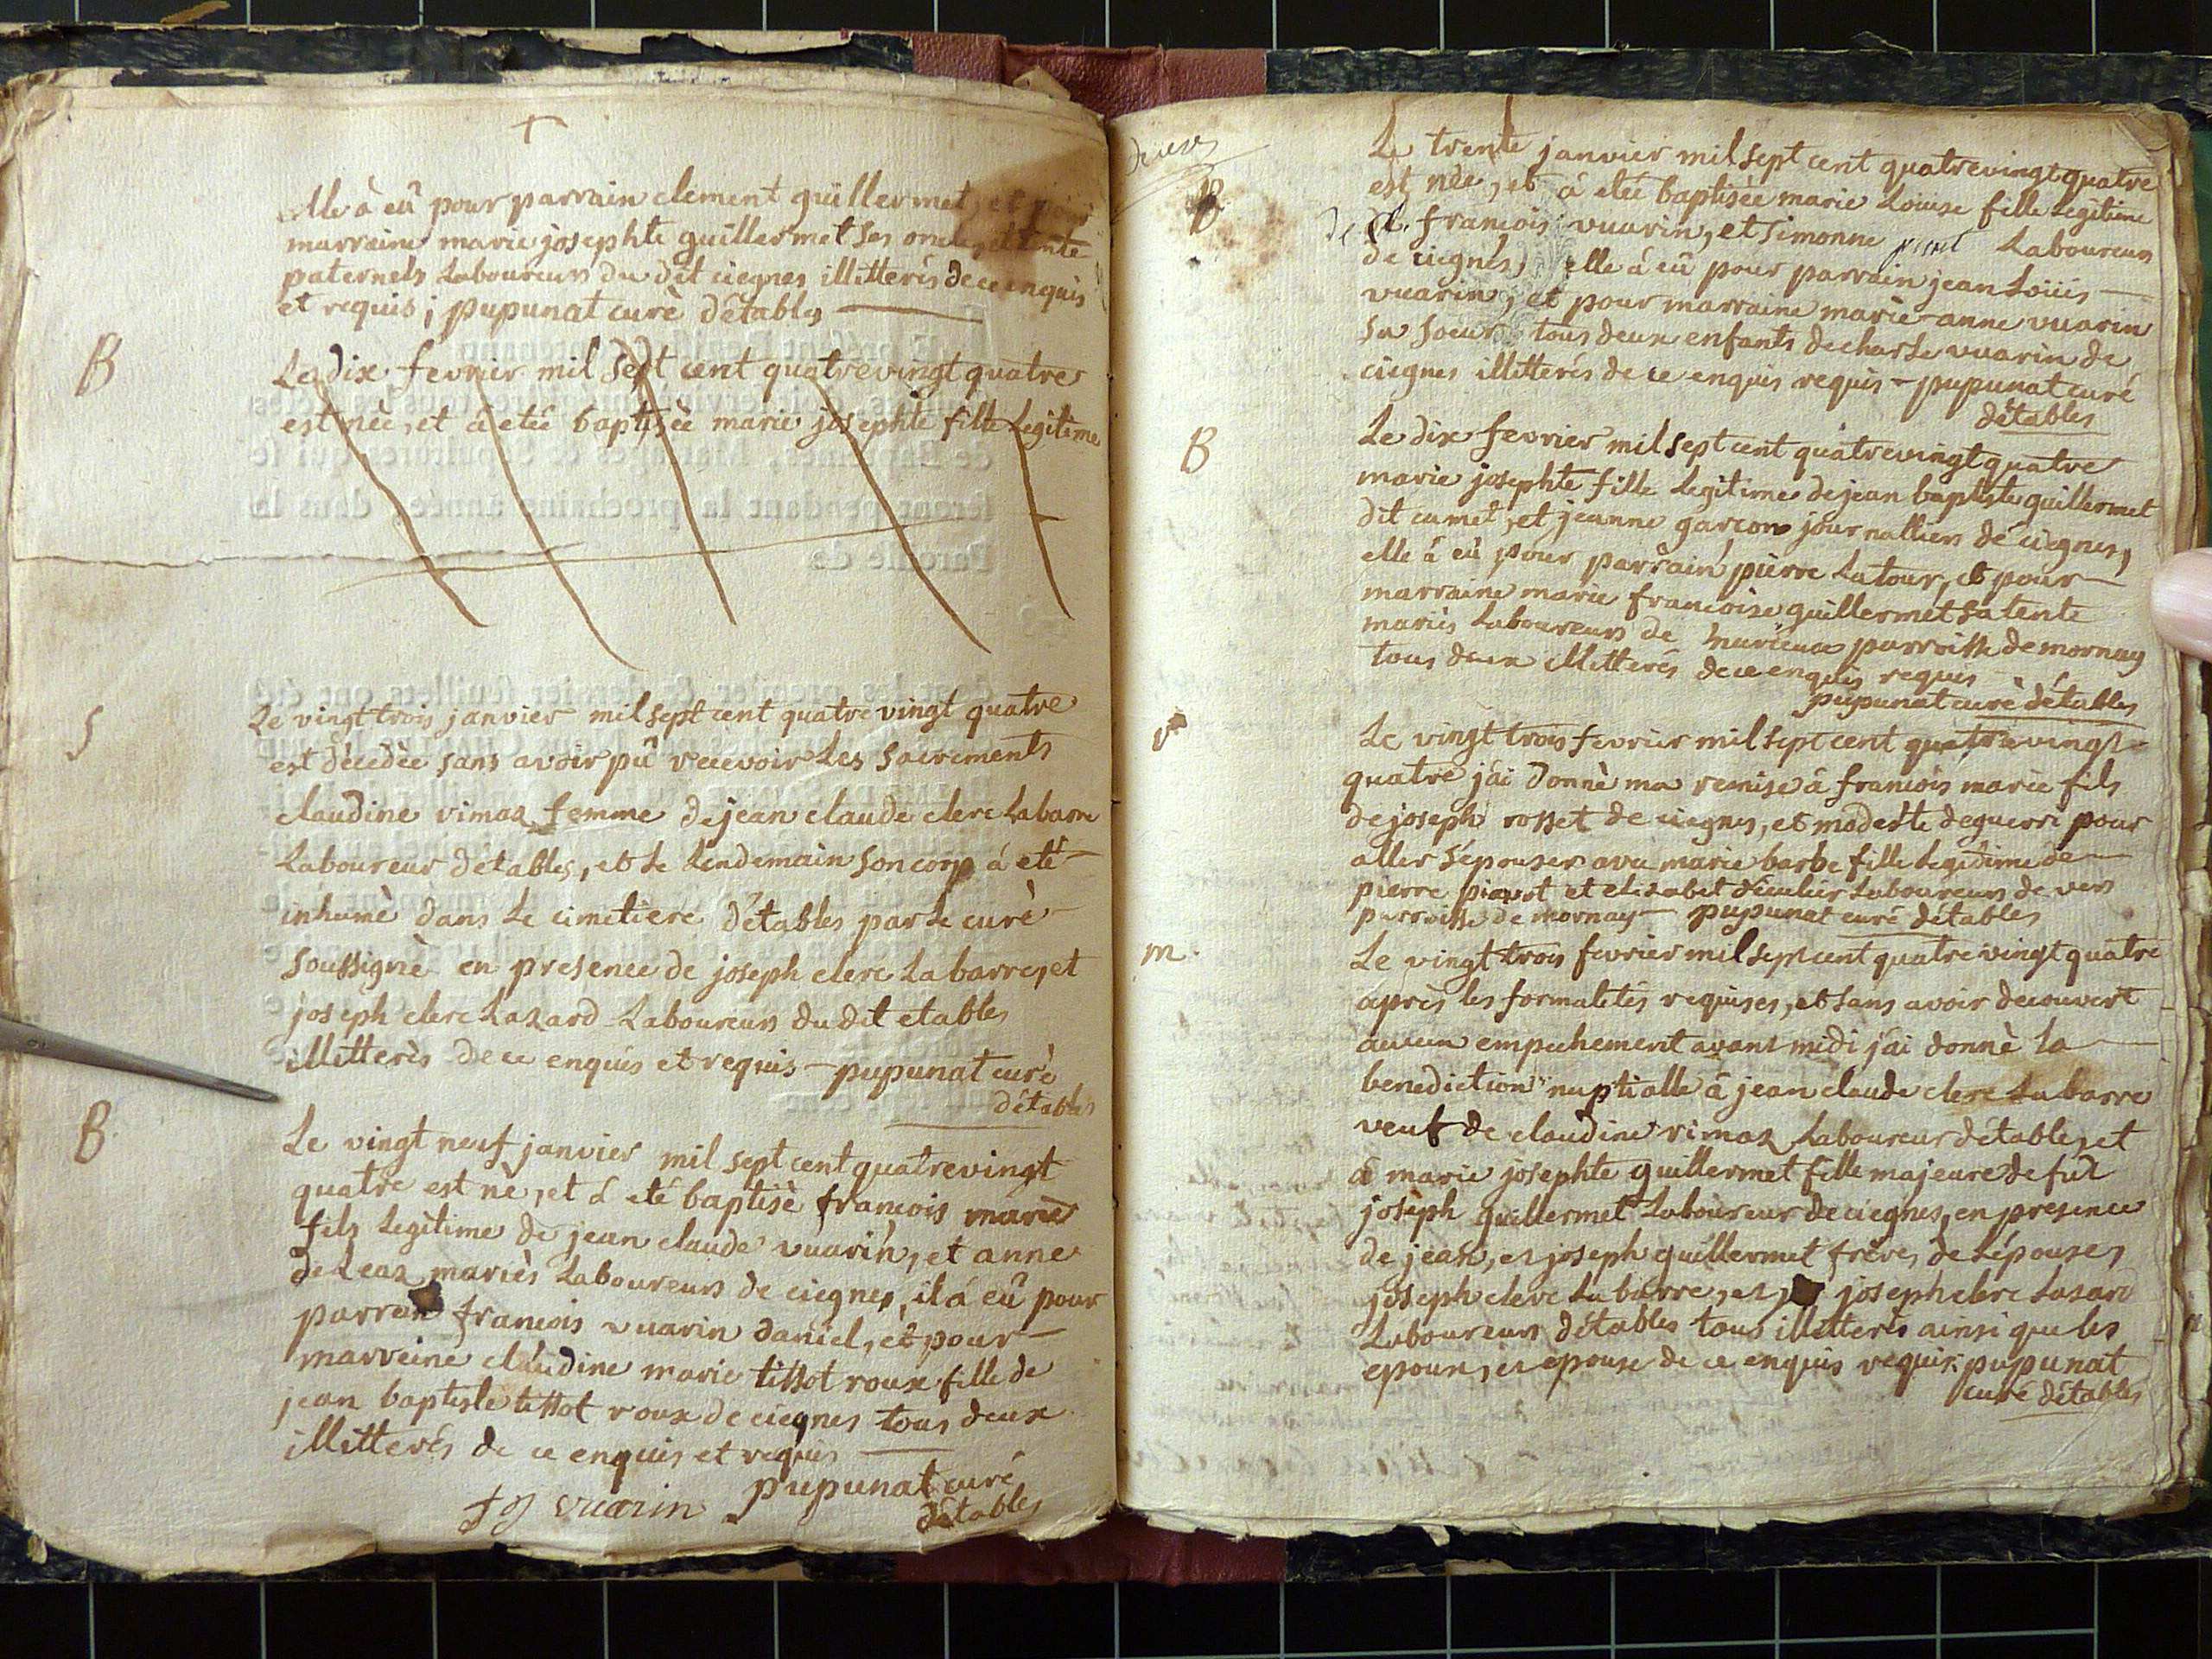 elle à eû pour parrain clement guillermet, et pour
marraine marie josephte guillermet ses oncle et tente
paternels Laboureurs du dit ciegnes illitterés de ce enquis
et requis ; pupunat curè détables
B
Le dix fevrier mil sept cent quatrevingt quatre
est nèe, et à etée baptisèe marie josephte fille Legitime
S
Le vingt trois janvier mil sept cent quatre vingt quatre
est décedèe sans avoir pû recevoir Les Sacrements
claudine vimaz femme de jean claude clerc Labarre
Laboureur détables, et Le Lendemain son corp à eté
inhumè dans Le cimetiere détables par Le curè
soussignè en presence de joseph clerc La barre, et
joseph clerc Lazard Laboureurs du dit etables
illitterès de ce enquis et requis — pupunat curè
détables
B
Le vingt neuf janvier mil sept cent quatrevingt
quatre est nè, et à eté baptisè francois marie
fils Legitime de jean claude vuarin, et anne
deleaz mariès Laboureurs de ciegnes, il à eû pour
parrain francois vuarin daniel, et pour
marreine claudine marie tissot roux fille de
jean baptiste tissot roux de ciegnes tous deux
illitterés de ce enquis et requis
pupunat curé
détables
vuarin
B
Le trente janvier mil sept cent quatrevingt quatre
est née, et à etée baptisèe marie Louise fille Legitime
de francois vuarin, et simonne Laboureurs
de ciegnes, elle à eû pour parrain jean Loüis
vuarin, et pour marraine marie-anne vuarin
sa soeur tous deux enfants de charle vuarin de
ciegnes illitterés de ce enquis requis - pupunat curé
détables
B
Le dix fevrier mil sept cent quatrevingt quatre
marie josephte fille Legitime de jean baptiste guillermet
dit camet, et jeanne garcon journalliers de ciegnes,
elle à eû pour parrain pierre Latour, et pour
marraine marie francoise guillermet sa tente
mariés Laboureurs de parroisse de mornay
tous deux illitterés de ce enquis requis
pupunat curè détables
Le vingt trois fevrier mil sept cent quatrevingt
quatre j'ai donnè ma remise à francois marie fils
de joseph rosset de ciegnes, et modeste deguerri pour
aller s'épouser avec marie barbe fille Legitime de
pierre et elizabet Laboureurs de vers
parroisse de mornay — pupunat curé détables
m.
Le vingt trois fevrier mil sept cent quatre vingt quatre
après les formalités requises, et sans avoir decouvert
aucun empechement avant midi j'ai donnè la
benediction nuptialle à jean claude clerc Labarre
veuf de claudine vimaz Laboureur détables, et
à marie josephte guillermet fille majeure de fût
joseph guillermet Laboureur de ciegnes, en presence
de jean, et joseph guillermet frères de Lépouse,
joseph clerc Labarre, et joseph clerc Lazard
Laboureurs détables tous illitterés ainsi que les
epoux, et epouse de ce enquis requis. pupunat
curé détables